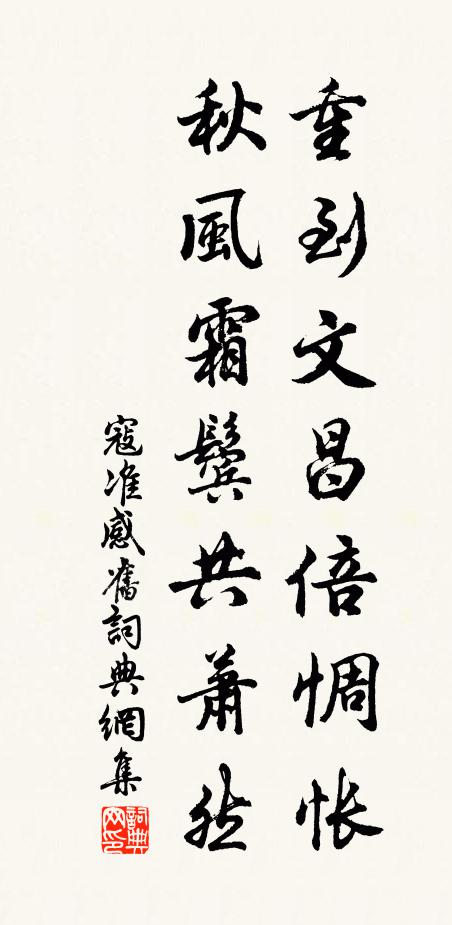 重到文昌倍惆怅
秋風霜鬓共蕭然
寇准感舊詞典網集
詞典网印